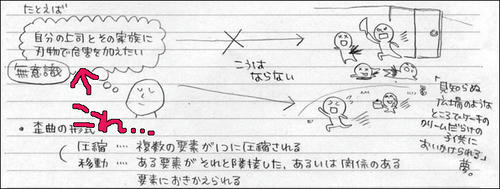 たとえば
自分の上司とその家族に
刃物で危害を加えたい
無意識
こうは
ならない
「見知らぬ
広場のような
ところでケーキの
クリームだらけの
子供に
おいかけられる」
夢。
これ…
・歪曲の形式
圧縮 … 複数の要素が1つに圧縮される
移動 … ある要素がそれと隣接した、あるいは関係のある
要素におきかえられる